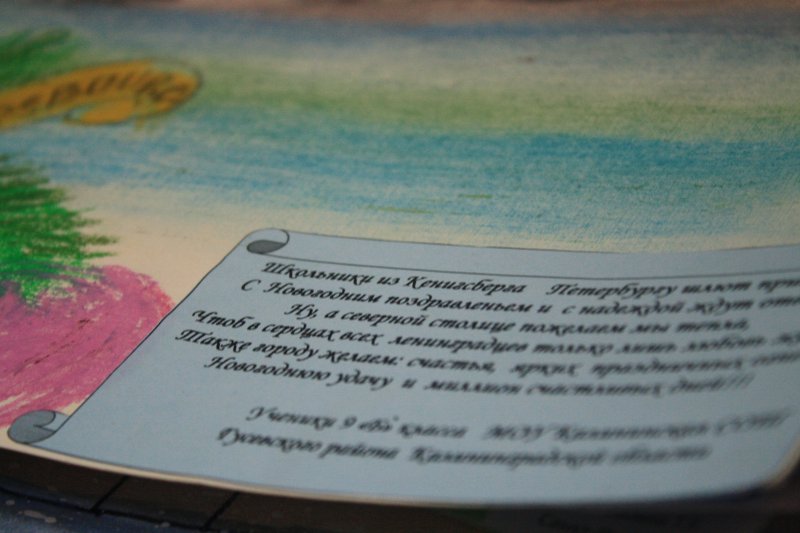 Школьники из Кенигсберга Петербургу шлют
С Новогодним поздравленьем и с надеждой ждут
Ну, а северной столице пожелаем мы тепла,
Чтоб в сердцах всех ленинградцев только лишь любовь
Также городу желаем: счастья, ярких праздничных
Новогоднюю удачу и миллион счастливых дней!!!
Ученики 9 «Б» класса МОУ Калининская СОШ
Гусевского района Калининградской области